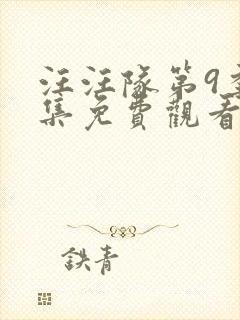 汪汪隊第9季
集免費觀看
鉄青